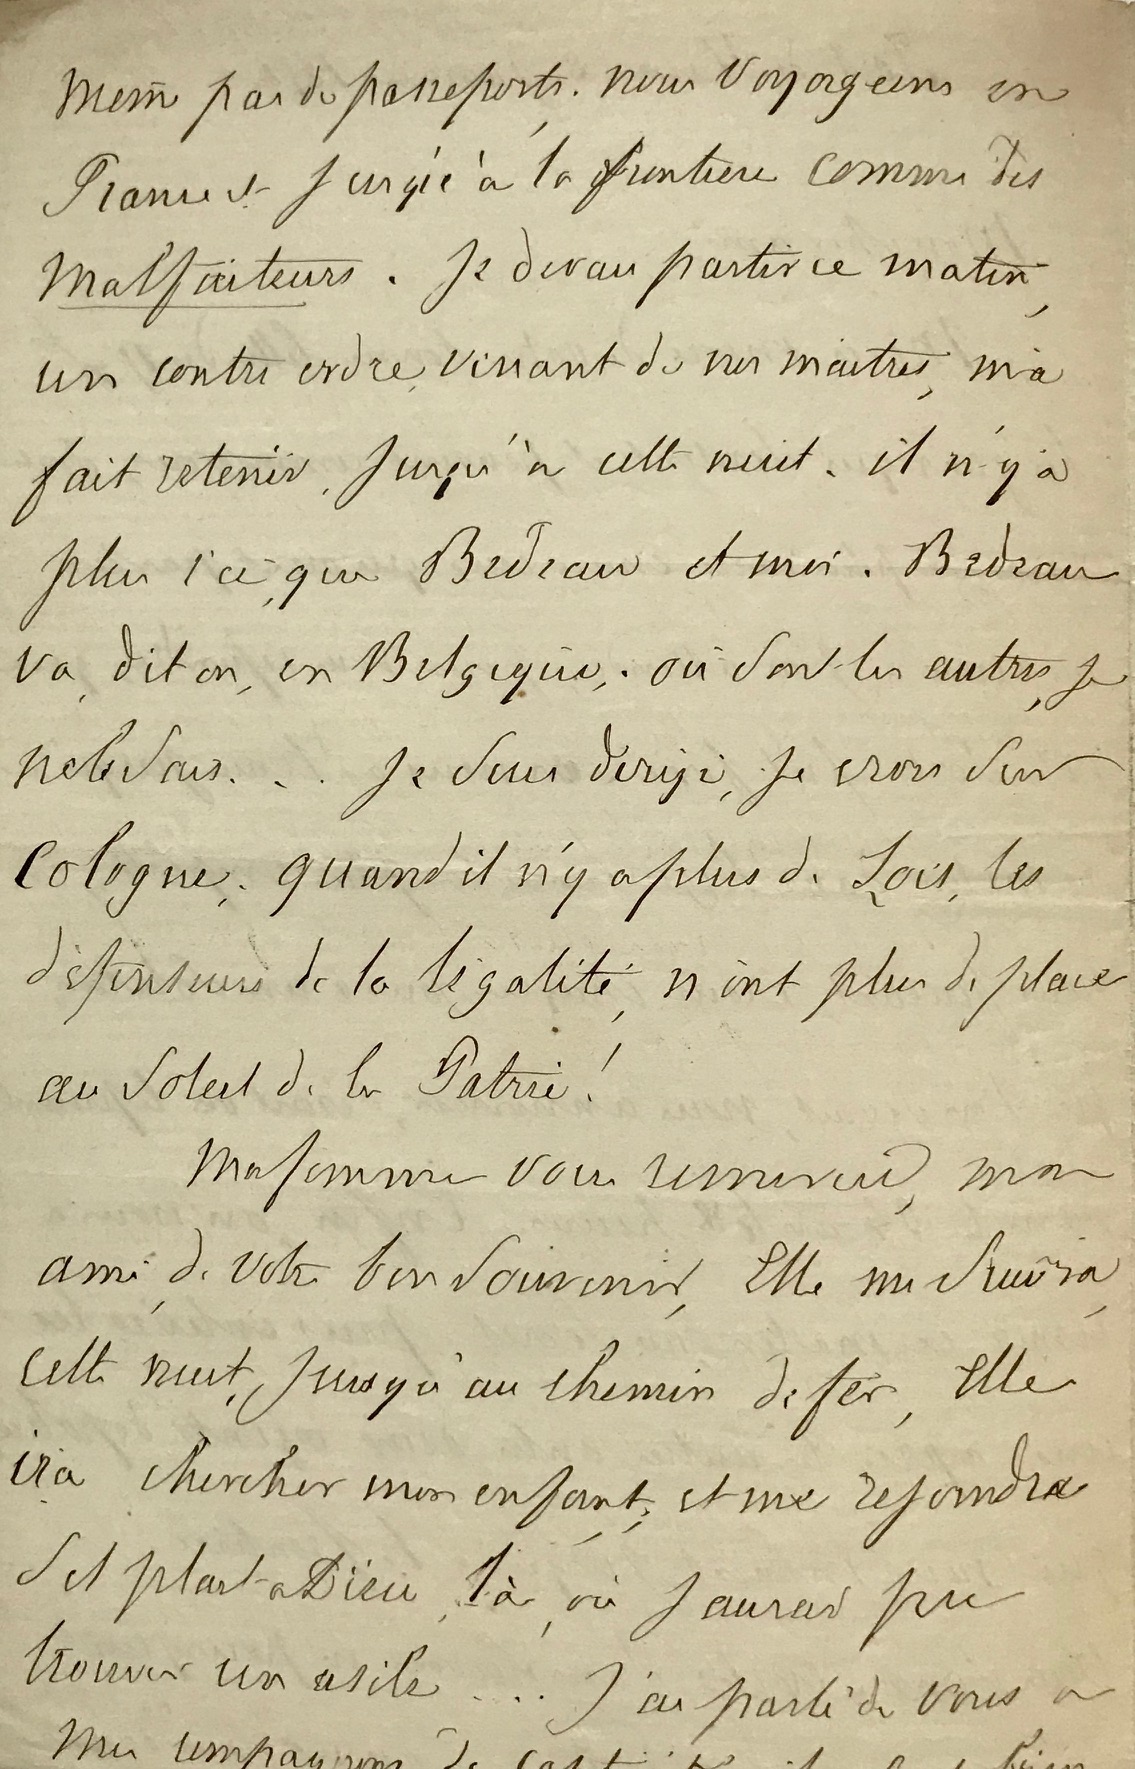 mem̄e pas de passeports. nous voyageons en
France et jusqu'à la frontiere comme des
malfaiteurs. Je devais partir ce matin,
un contre ordre, venant de nos maitres, m'a
fait retenir, jusqu'à cette nuit. il n'y a
plus ici, que Bedeau et moi. Bedeau
va, dit on, en Belgique,. où sont les autres, je
ne le sais. . . Je suis dirigé, je crois sur
Cologne,. quand il n'y a plus de Lois, les
défenseurs de la légalité, n'ont plus de place
au Soleil de la Patrie!
Ma femme vous remercie, mon
ami, de votre bon Souvenir, Elle me suivra,
cette nuit, jusqu'au chemin de fer, Elle
ira chercher mon enfant, et me rejoindra
s'il plait a Dieu, là, où j'aurai pu
trouver un asile .... J'ai parlé de vous a
mes compagnons de captivité